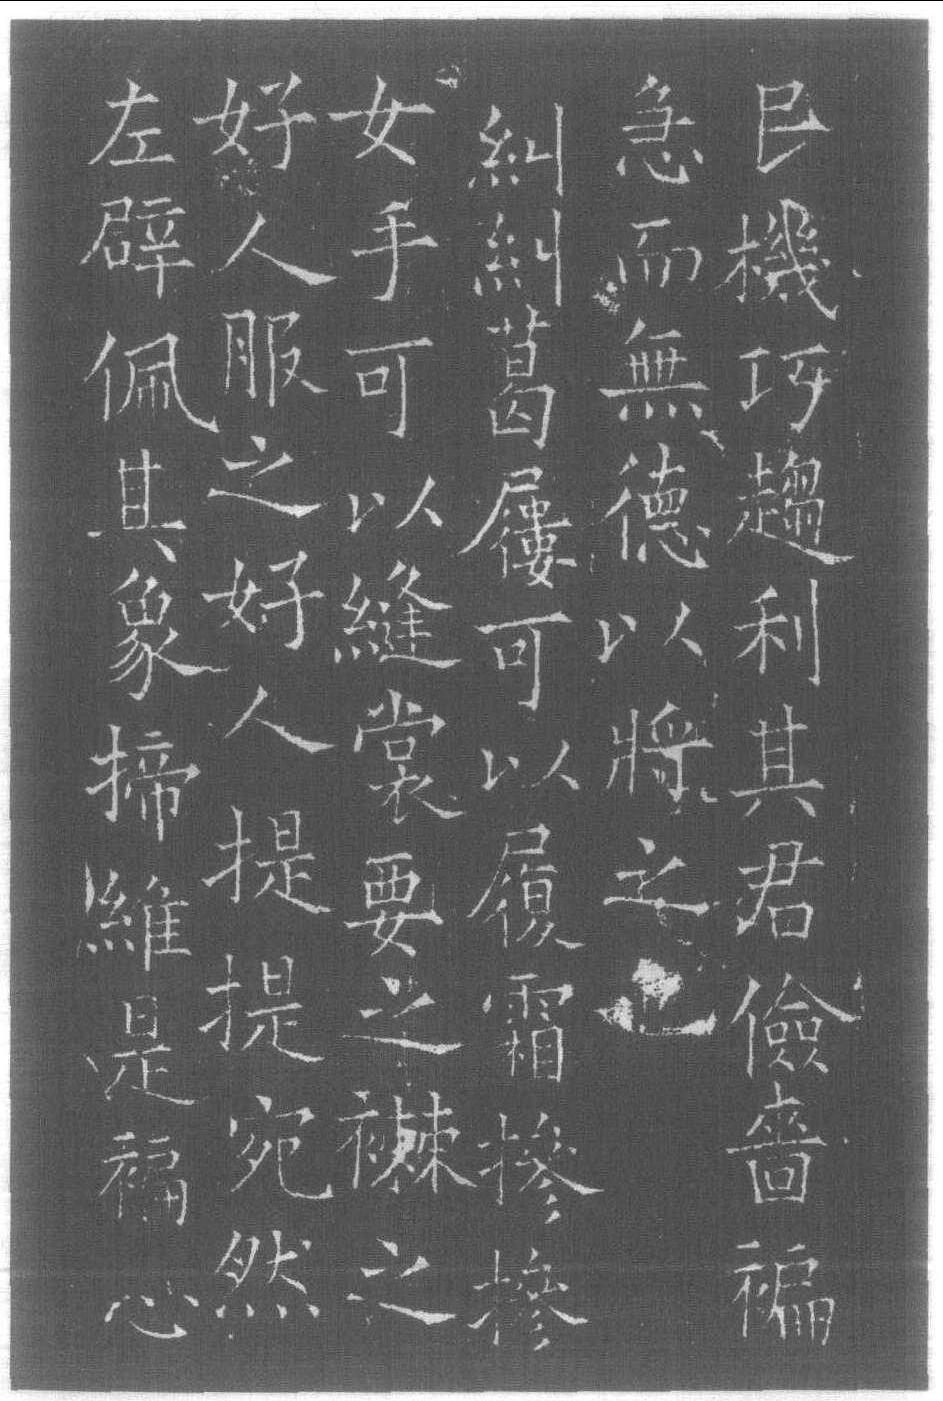 民機巧趨利其君儉嗇褊
急而無德以將之也
糾糾葛屨可以履霜摻摻
女手可以縫裳要之襋之
好人服之好人提提宛然
左辟佩其象揥維是褊心